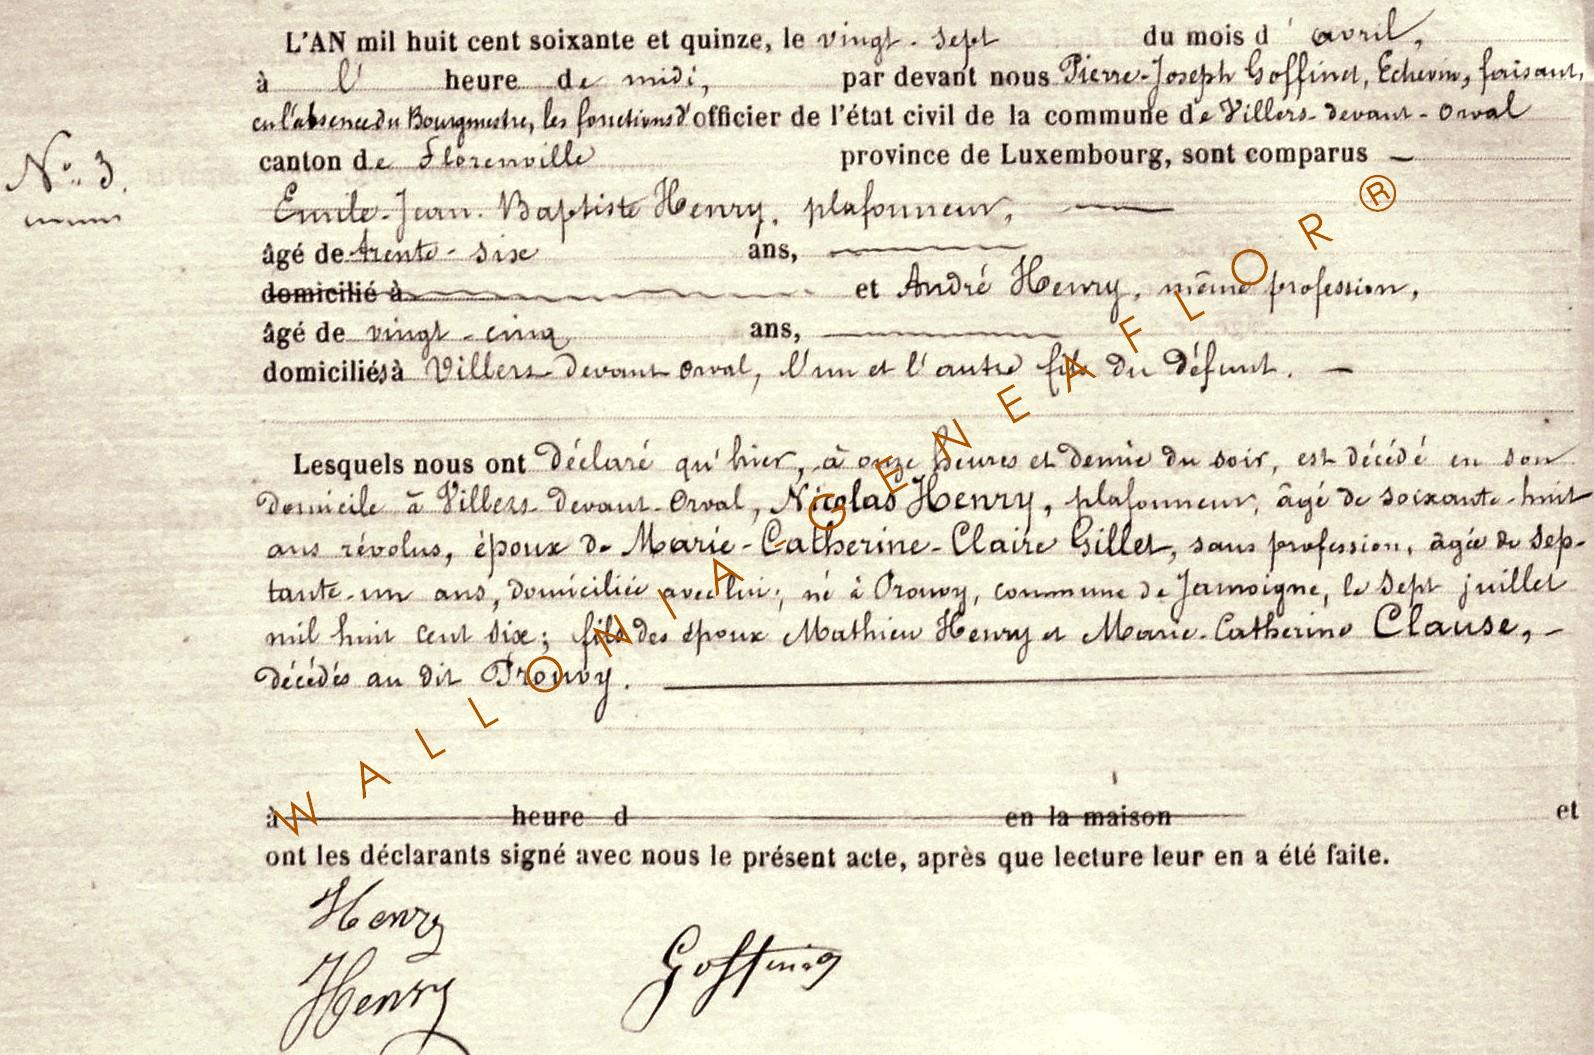 L'AN mil huit cent soixante et quinze, le vingt-sept du mois d'avril,
à l' heure de midi, par devant nous Pierre-Joseph Goffinet, Echevin, faisant,
en l'absence du Bourgmestre, les fonctions d'officier de l'état civil de la commune de Villers-devant-Orval
canton de Florenville province de Luxembourg, sont comparus —
N° 3.
Emile-Jean-Baptiste Henry, plafonneur,
âgé de trente-six ans,
domicilié à et André Henry, même profession,
âgé de vingt-cinq ans,
domiciliés à Villers-devant-Orval, l'un et l'autre fils du défunt. —
Lesquels nous ont déclaré qu'hier, à onze heures et demie du soir, est décédé en son
domicile à Villers-devant-Orval, Nicolas Henry, plafonneur, âgé de soixante-huit
ans révolus, époux de Marie-Catherine-Claire Gillet, sans profession, âgée de sep-
tante-un ans, domiciliée avec lui; né à Prouvy, commune de Jamoigne, le sept juillet
mil huit cent six; fils des époux Mathieu Henry et Marie-Catherine Clause, —
décédés au dit Prouvy.
à heure d en la maison et
ont les déclarants signé avec nous le présent acte, après que lecture leur en a été faite.
Henry
Henry Goffinet
WALLONIA-GENEAFLOR®